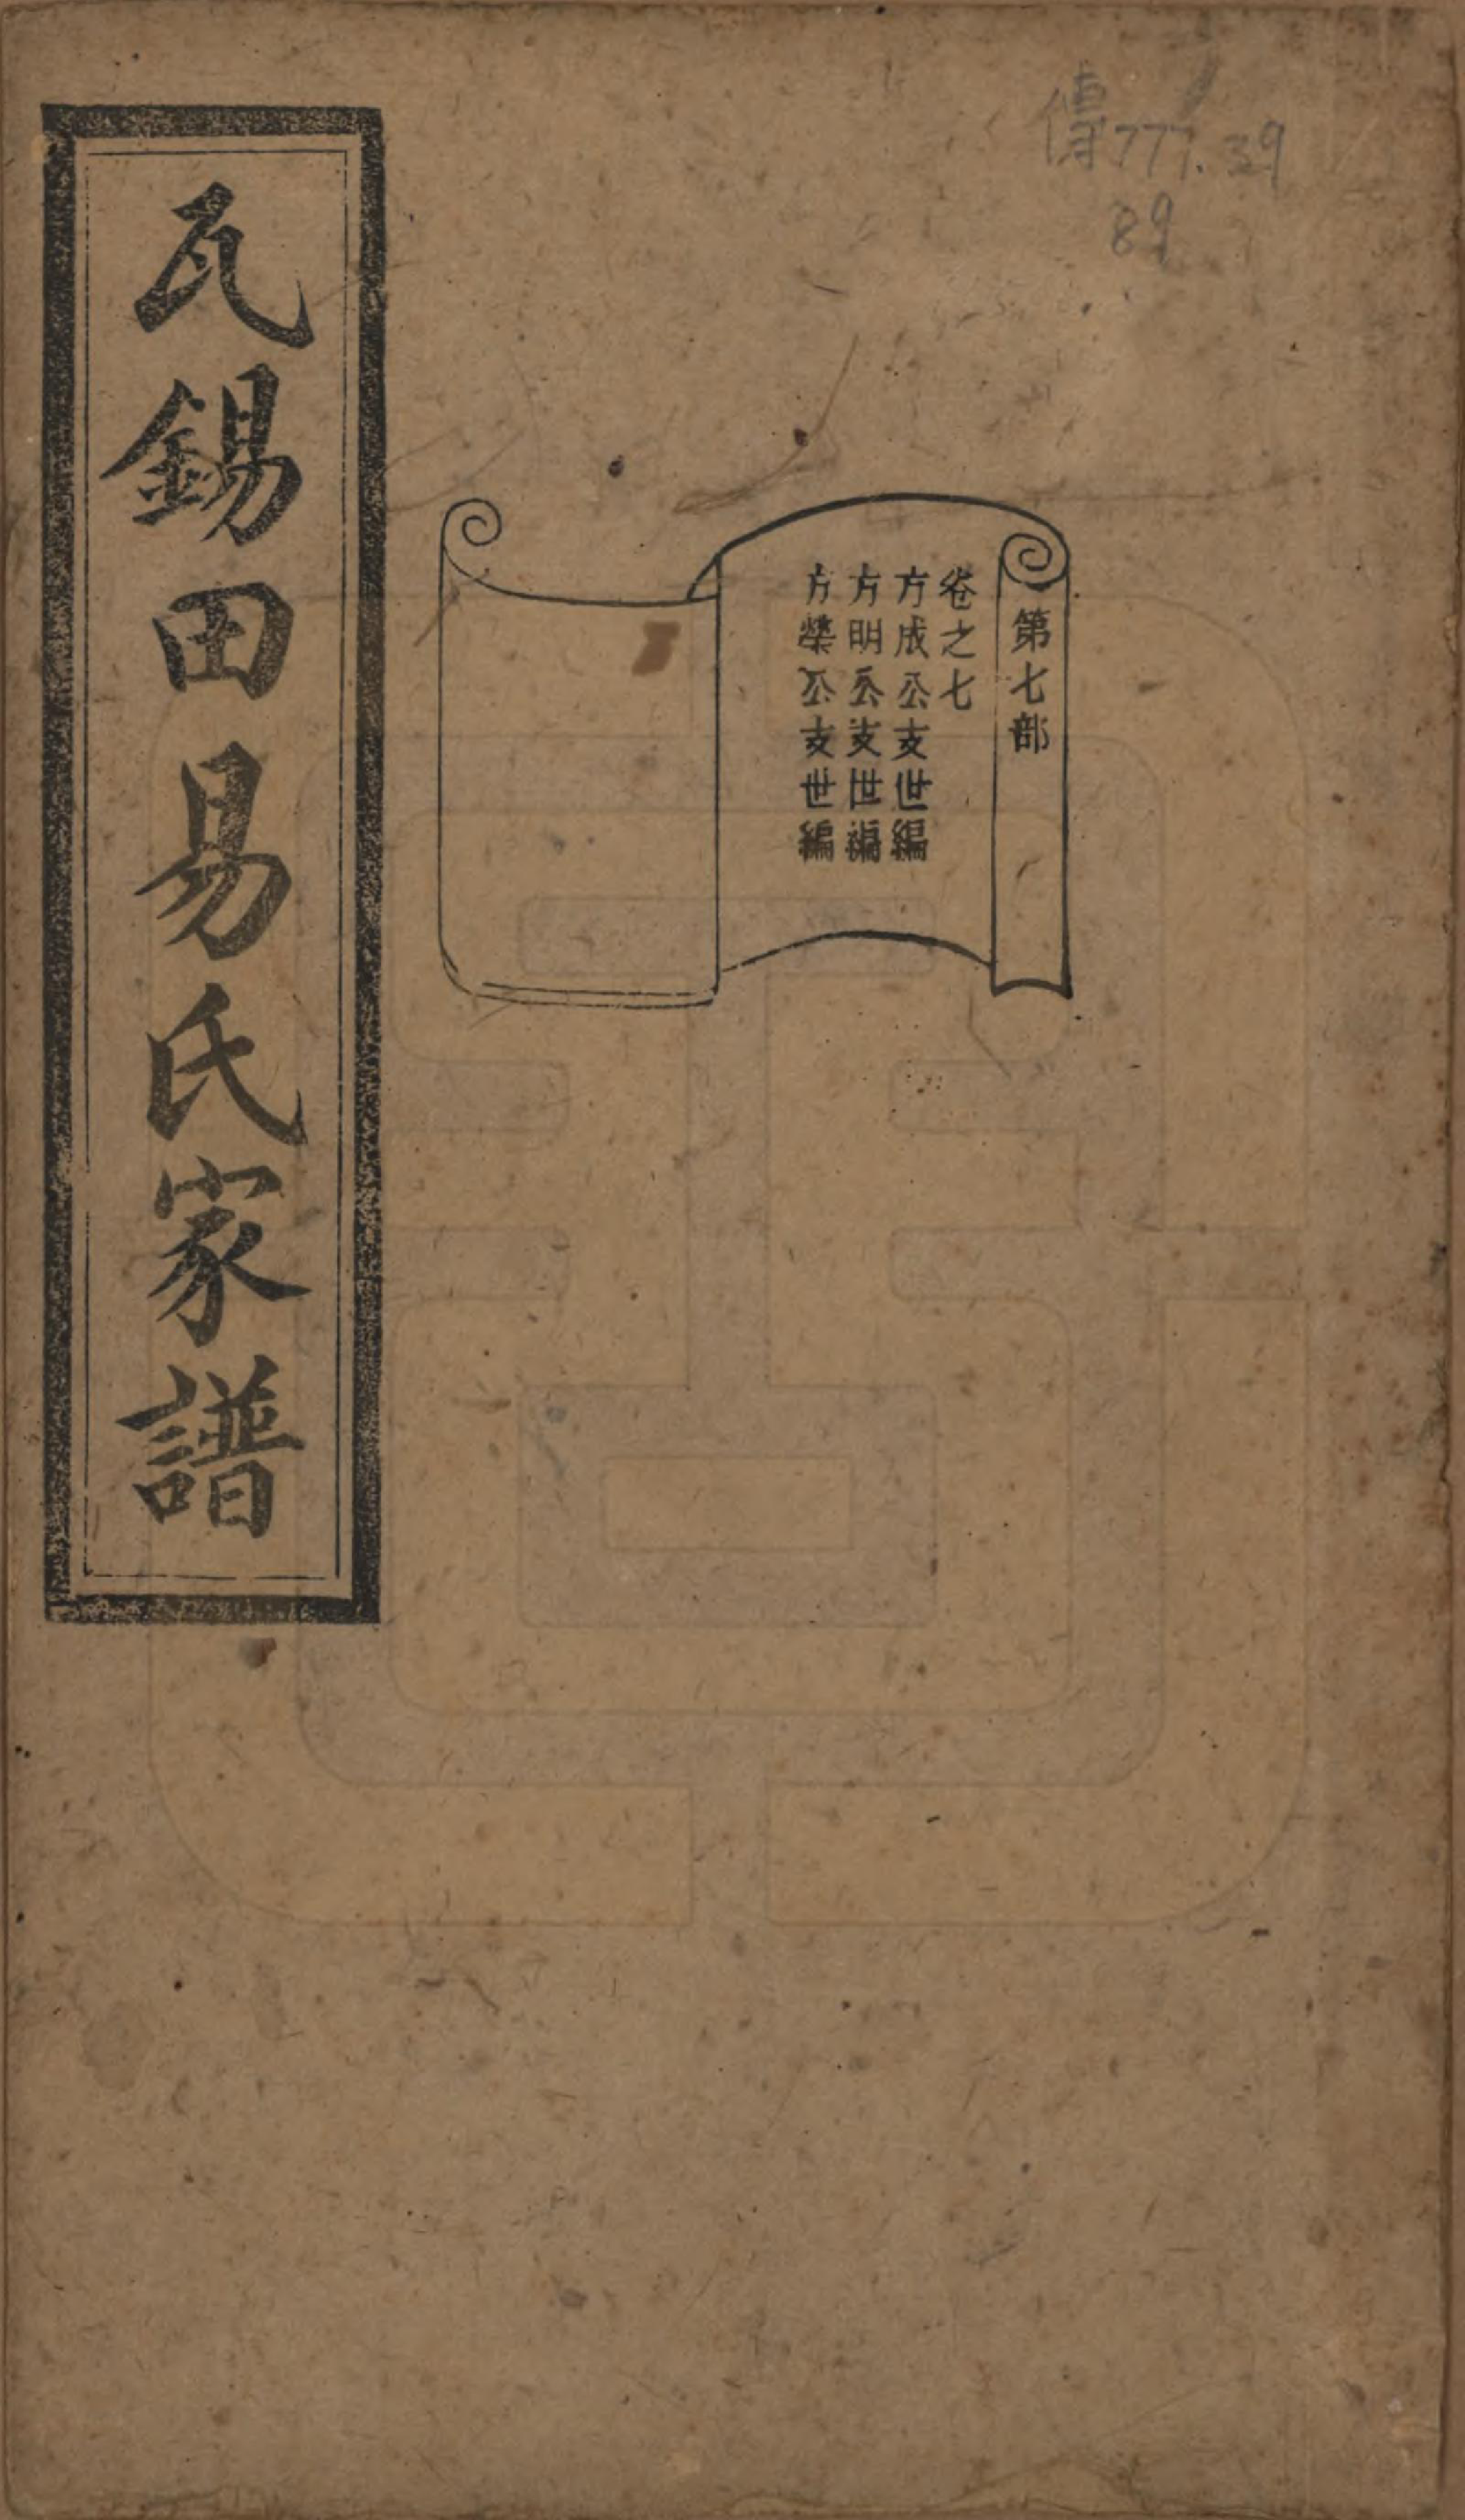 傳777.39
89
第七部
卷之七
方成公支世編
方明公支世編
方榮公支世編
瓦錫田易氏家譜